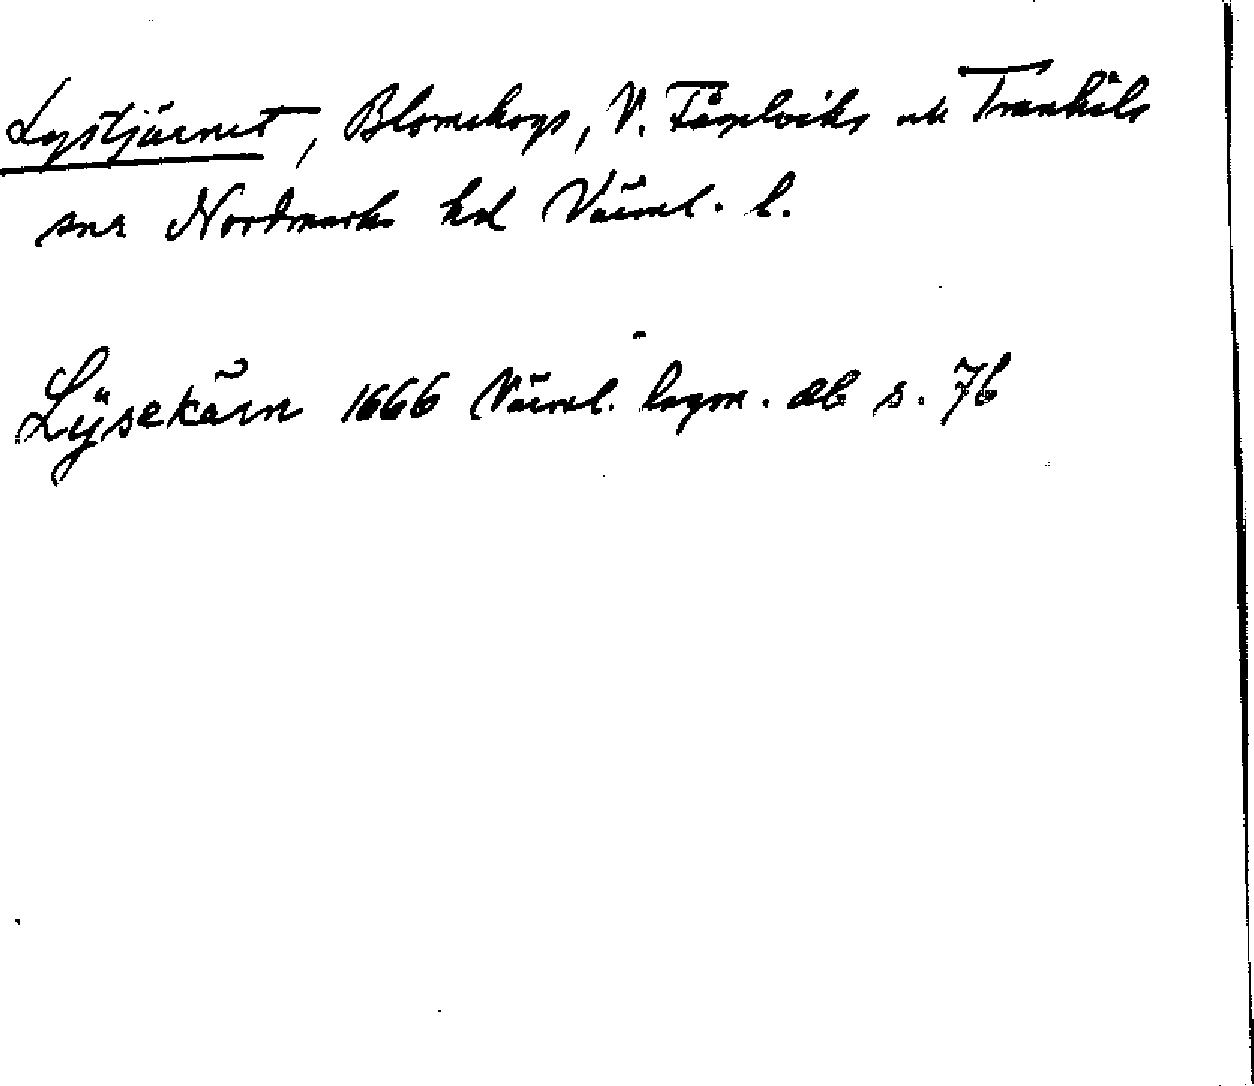 Lystjärnet, Blomskogs, V. Fågelviks och Trankils
snr Nordmarks hd Värml. l.
Lÿsekärn 1666 Värml. lagm. db s. 76